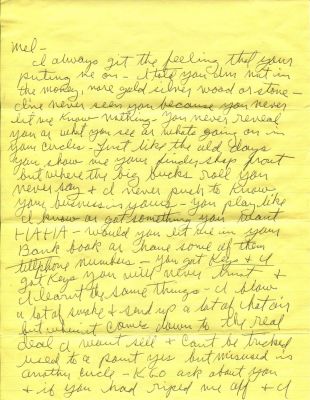 Mel-
I always get the feeling that your
puting me on - I told you I'm not in
the money, nore gold silver wood or stone -
I've never seen you because you never
let me know nothing - you never reveal
you or what you see or whats going on in
your circles - Just like the old days
you show me your finder shop front
but where the big bucks roll you
never say & I never push to know
your business is yours - you play like
I know or got something you want
HA HA - would you let me in your
Bank book or have some of them
telephone numbers - you got keys & I
got keys you will never trust &
I learnt the same things - I blow
a lot of smoke & send up a lot of hot air
but when it comes down to the real
deal I won't sell & can't be tricked
used to a point yes but misused is
another circle - ask about you
& if you had riped me off & I